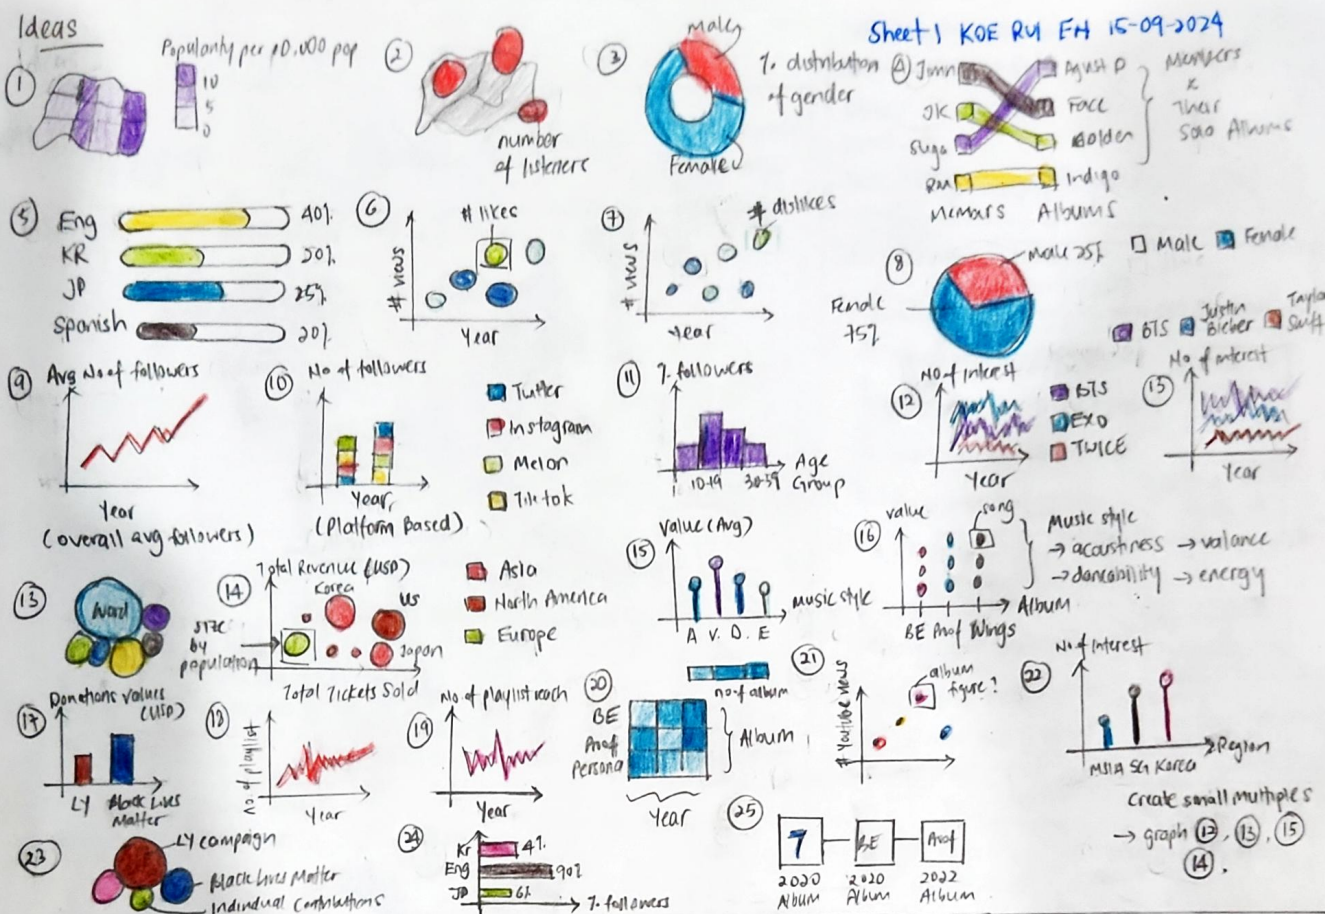 Ideas
Sheet 1 KOE RUI EN 15-09-2024
1
Popularity per 10,000 pop
10
5
0
2
number
of listeners
3
Male
Female
% distribution
of gender
4
Jimin
JK
Suga
RM
Agust D
Face
Golden
Indigo
Members Albums
Members
x
Their
Solo Albums
5
Eng 40%
KR 50%
JP 25%
Spanish 20%
6
# likes
# views
Year
7
# dislikes
# views
Year
8
Male 25%
Female
75%
Male Female
9
Avg No of followers
Year
(overall avg followers)
10
No of followers
Year
(Platform Based)
Twitter
Instagram
Melon
Tiktok
11
% followers
10-19 30-39
Age
Group
12
No of Interest
Year
BTS
EXO
TWICE
BTS Justin
Bieber Taylor
Swift
13
No of interest
Year
13
Word
14
Total Revenue (USD)
Korea
US
Japan
size
by
population
Total Tickets Sold
Asia
North America
Europe
15
Value (Avg)
A V. D. E
music style
16
value
song
BE Proof Wings
Album
Music style
→ acoustiness → valance
→ danceability → energy
17
Donations values
(USD)
LY Black Lives
Matter
18
no. of playlist
Year
19
No. of playlist reach
Year
20
no. of album
BE
Proof
Persona
Album
Year
21
# Youtube views
album
figure?
22
No of Interest
MSIA SG Korea
Region
Create small multiples
→ graph 12, 13, 15
14.
23
LY campaign
Black Lives Matter
Individual Contributions
24
Kr 4%
Eng 90%
JP 6%
% followers
25
7 BE Proof
2020 2020 2022
Album Album Album